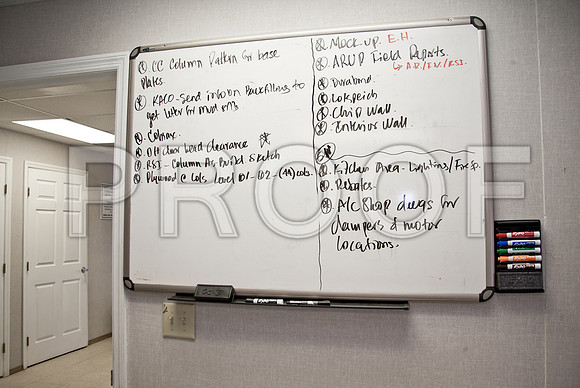 CC Column Pattern for base
Plates.
KACO-Send info on Backfilling to
get later for mud
Colmax.
OH door head clearance
RSI - Column As Build Sketch
Plywood C Cols. Level 101-102-(44) cols.
Mock up. E.H.
ARUP Field Reports.
Durabond.
Chip Wall.
Interior Wall.
Kitchen Area - Lighting/
Rebates.
A/C Shop dwgs for
dampers & motor
locations.
PROOF